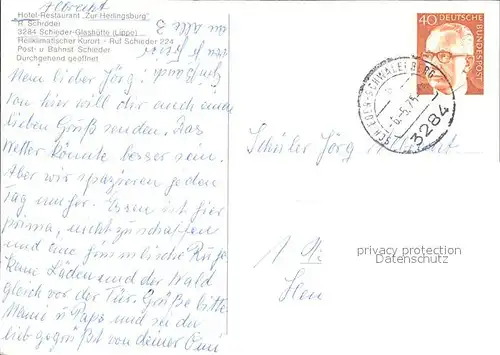 Hotel-Restaurant "Zur Herlingsburg"
R. Schröder
3284 Schieder-Glashütte (Lippe)
Heilklimatischer Kurort - Ruf Schieder 224
Post- u. Bahnst. Schieder
Durchgehend geöffnet
an Alle 3
Mein lieber Jörg!
Von hier will dir auch einen
lieben Gruß senden. Das
Wetter könnte besser sein.
Aber wir spazieren jeden
Tag umher. Essen ist hier
prima, nicht zu schaffen
und eine himmlische Ruhe
keine Läden und der Wald
gleich vor der Tür. Grüße bitte
Mami u Papi und sei du
lieb gegrüßt von deiner Omi
40
DEUTSCHE
BUNDESPOST
SCHIEDER-SCHWALENBERG
-6.-5.75
3284
Schüler Jörg
privacy protection
Datenschutz